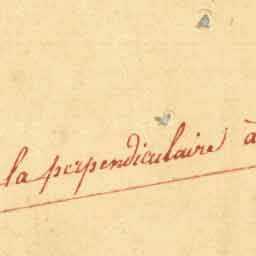 la perpendiculaire à